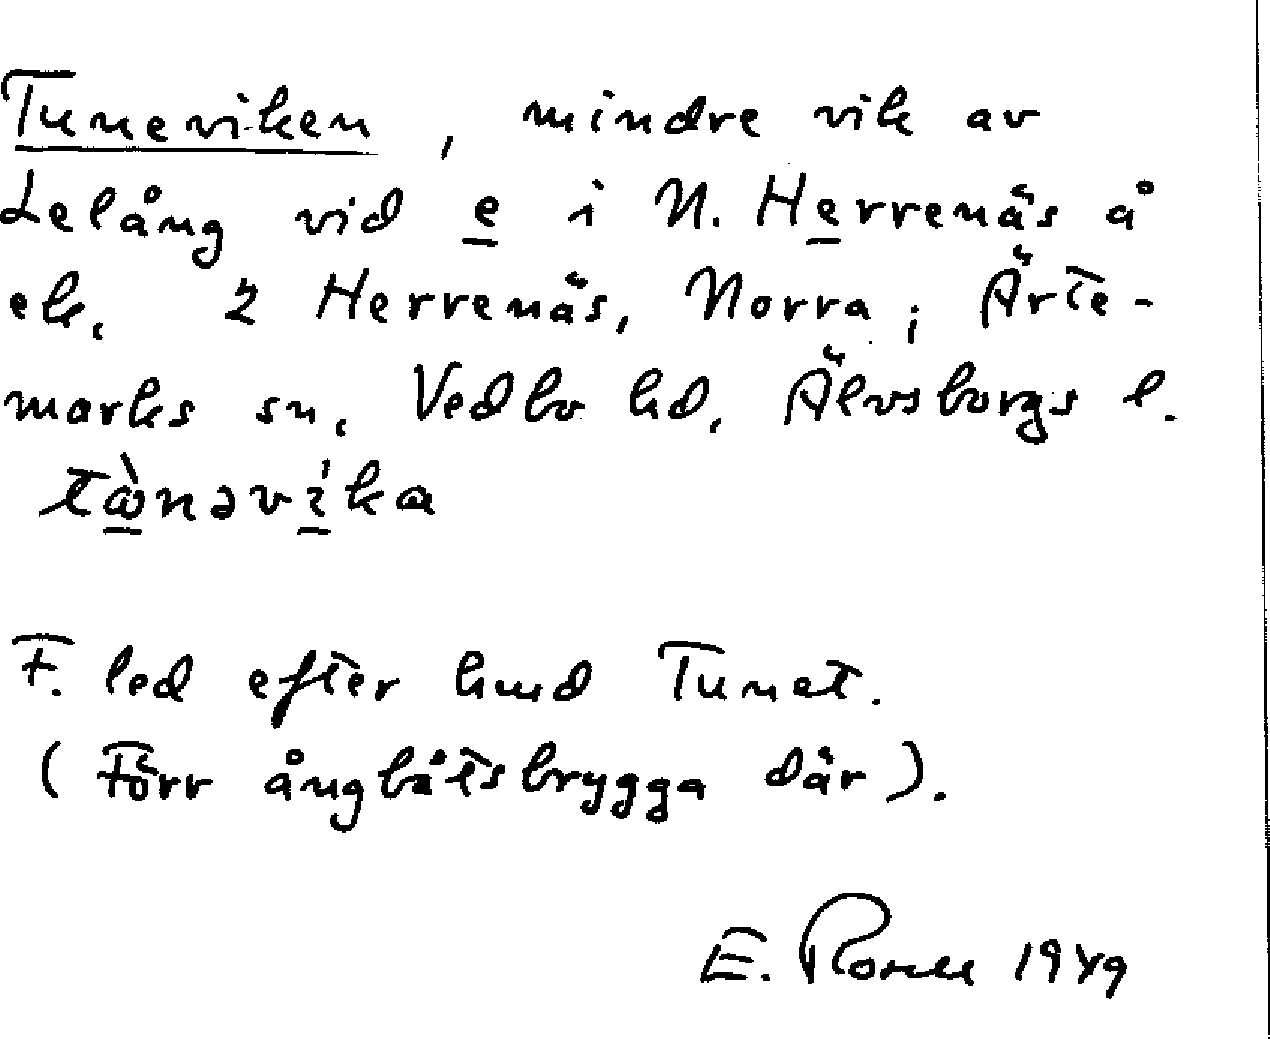 Tuneviken, mindre vik av
Lelång vid e i N. Herrenäs å
ek. 2 Herrenäs, Norra; Ärte-
marks sn, Vedbo hd, Älvsborgs l.
F. led efter hmd Tunet.
(Förr ångbåtsbrygga där).
E. 1949